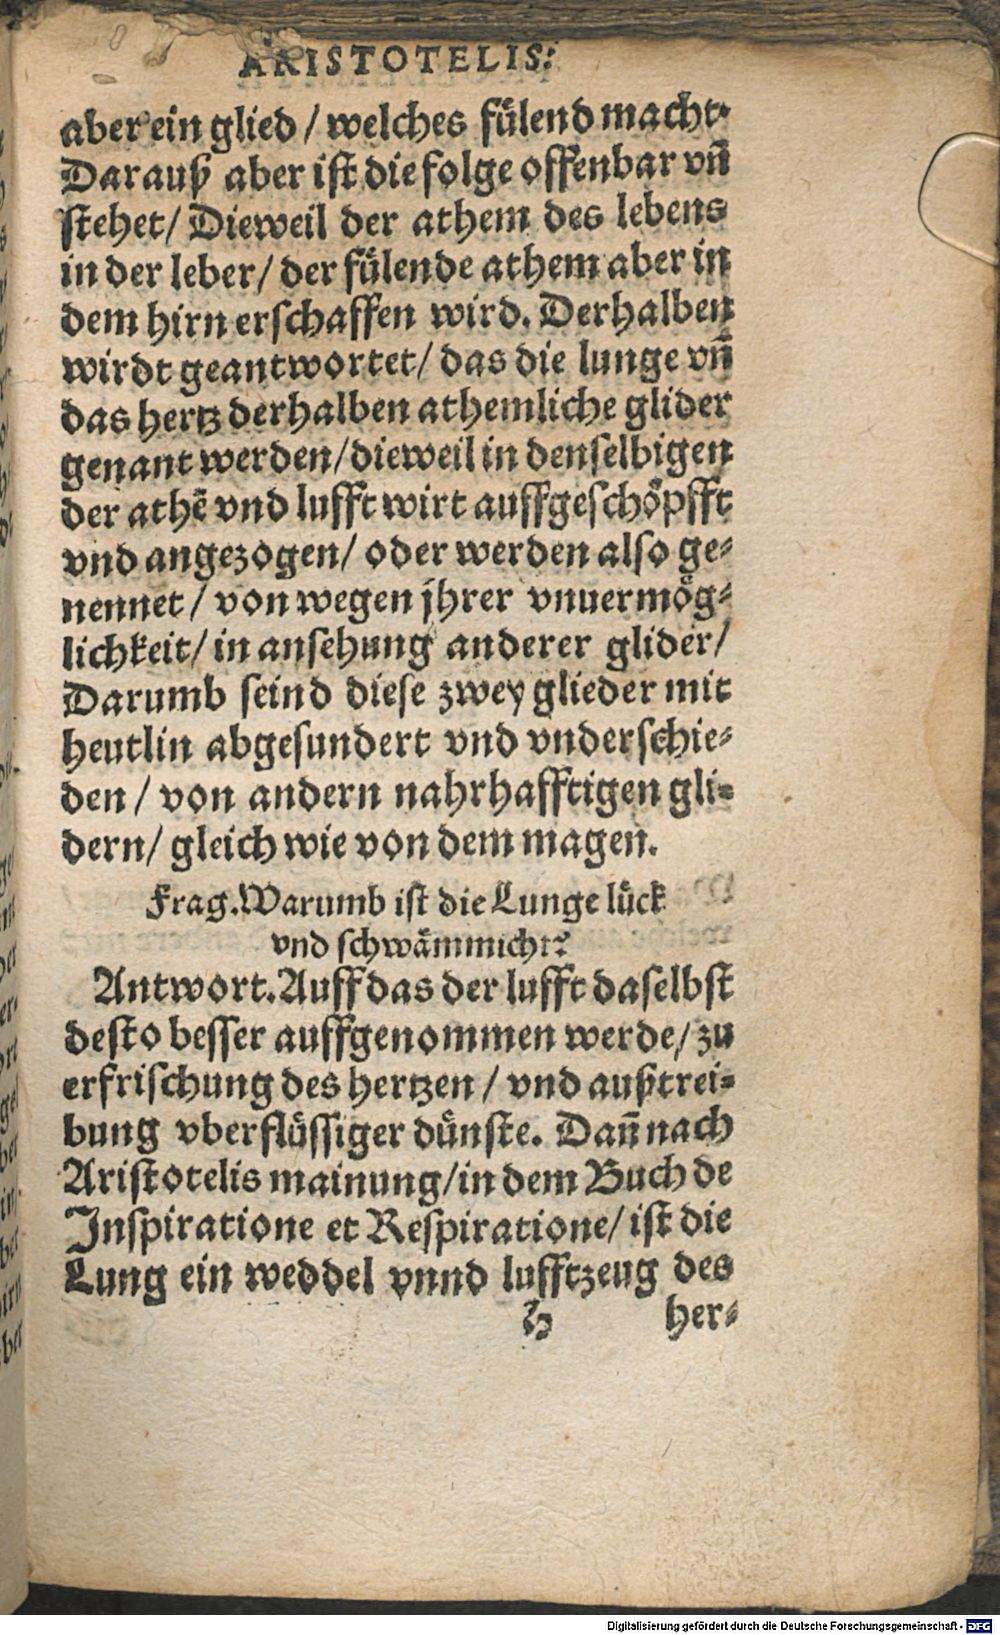 ARISTOTELIS:
aber ein glied / welches fülend macht.
Darauß aber ist die folge offenbar vñ
stehet / Dieweil der athem des lebens
in der leber / der fülende athem aber in
dem hirn erschaffen wird. Derhalben
wirdt geantwortet / das die lunge vñ
das hertz derhalben athemliche glider
genant werden / dieweil in denselbigen
der athē vnd lufft wirt auffgeschöpfft
vnd angezogen / oder werden also ge⸗
nennet / von wegen jhrer vnuermög⸗
lichkeit / in ansehung anderer glider /
Darumb seind diese zwey glieder mit
heutlin abgesundert vnd vnderschie⸗
den / von andern nahrhafftigen gli⸗
dern / gleich wie von dem magen.
Frag. Warumb ist die Lunge lück
vnd schwämmicht?
Antwort. Auff das der lufft daselbst
desto besser auffgenommen werde / zu
erfrischung des hertzen / vnd außtrei⸗
bung vberflüssiger dünste. Dañ nach
Aristotelis mainung / in dem Buch de
Inspiratione et Respiratione / ist die
Lung ein weddel vnnd lufftzeug des
h her⸗
Digitalisierung gefördert durch die Deutsche Forschungsgemeinschaft - DFG